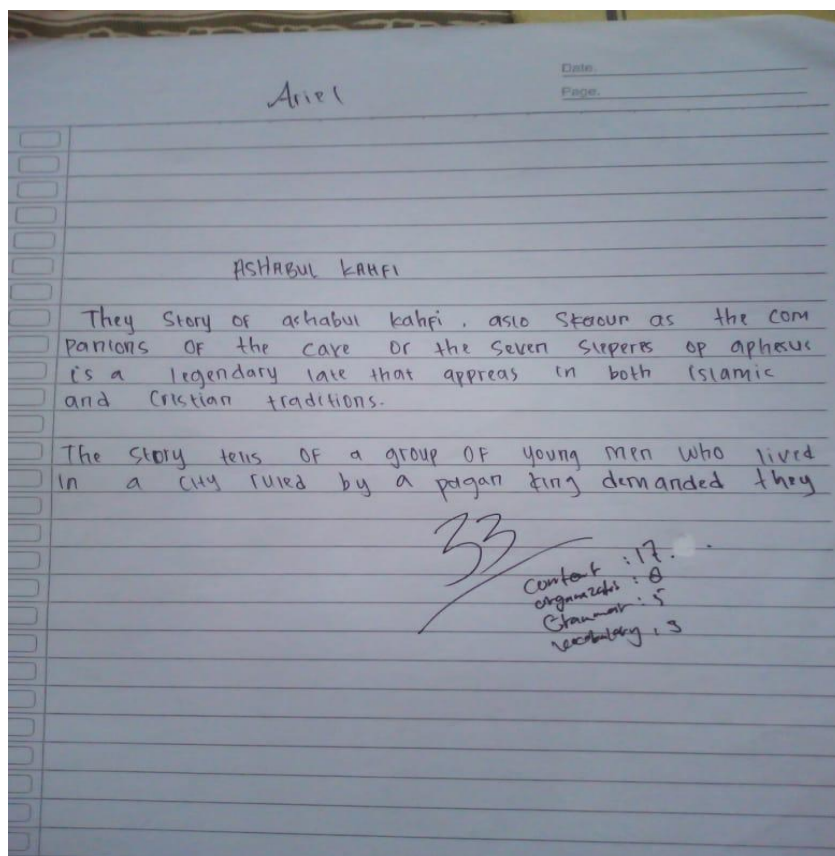 Date.
Ariel
Page.
ASHABUL KAHFI
They Story of ashabul kahfi. aslo as the com
panions of the cave or the seven sleperes op aphesus
is a legendary late that appreas in both Islamic
and Cristian traditions.
The story tells of a group of young men who lived
in a city ruled by a pagan king demanded they
33
Content : 17.
organization : 8
Grammar : 5
vocabulary : 3